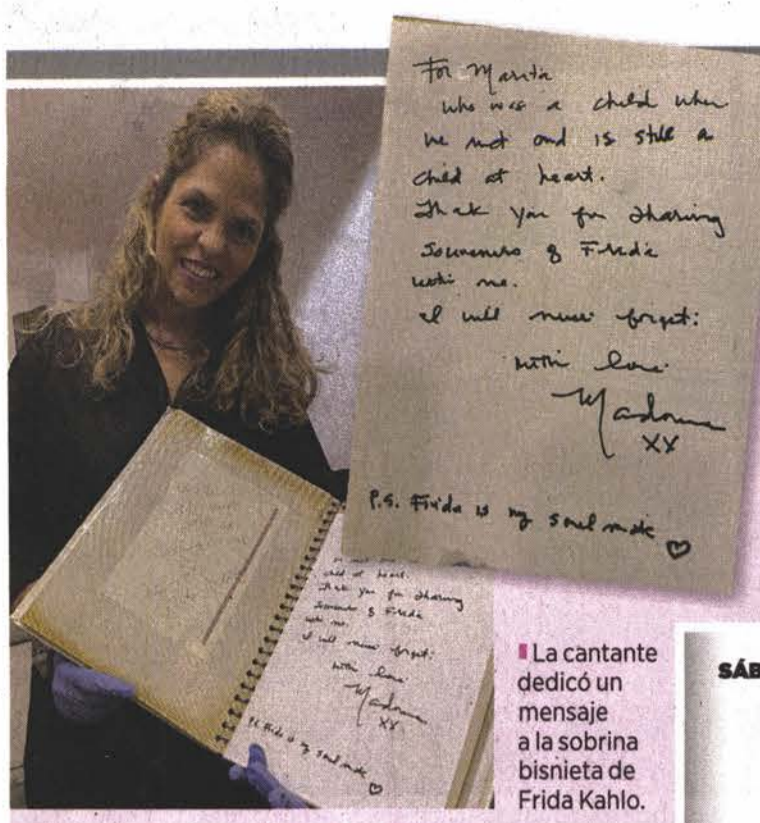 For Marita
who was a child when
we met and is still a
child at heart.
Thank you for sharing
Souvenirs of Frida
with me.
I will never forget.
with love
Madonna
XX
P.S. Frida is my soul mate ♡
child at heart.
Thank you for sharing
Souvenirs of Frida
with me.
I will never forget.
with love
Madonna
XX
P.S. Frida is my soul mate ♡
La cantante
dedicó un
mensaje
a la sobrina
bisnieta de
Frida Kahlo.
SÁB